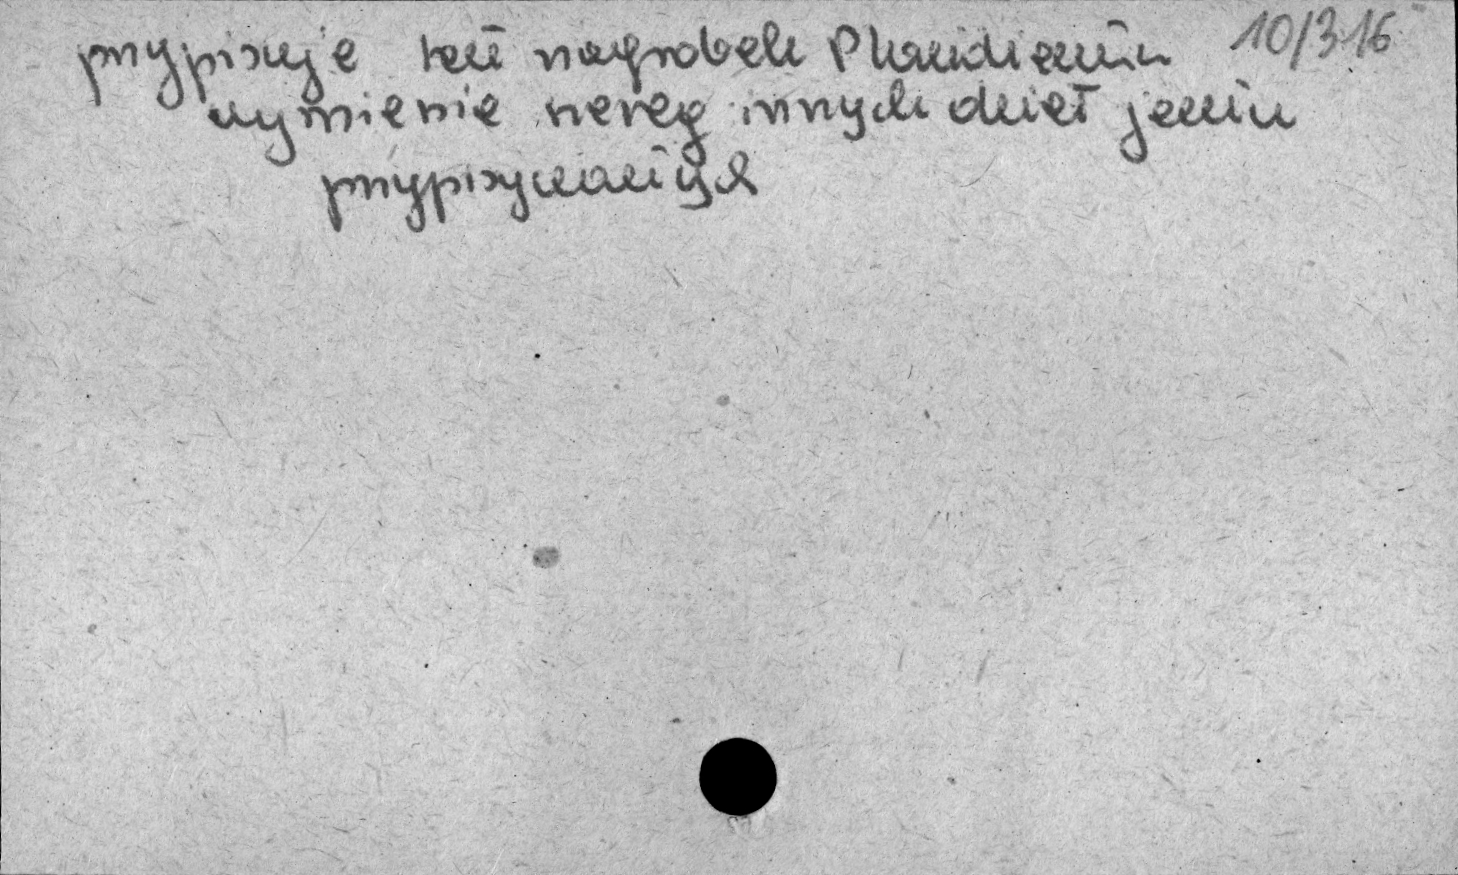 przypisuje ten nagrobek Plaudianin 10/316
wymienia szereg innych dzieł jemu
przypisywanych